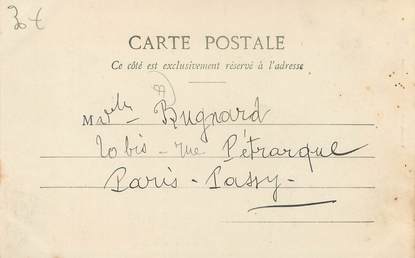 30 €
CARTE POSTALE
Ce côté est exclusivement réservé à l'adresse
Melle Bugnard
10 bis - rue Pétrarque
Paris - Passy -